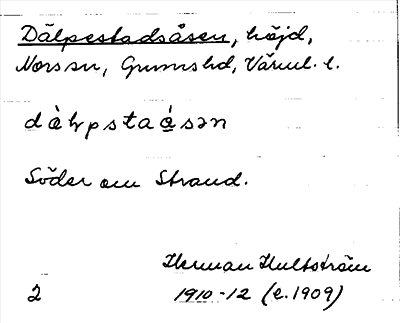 Dälpestadsåsen, höjd,
Norssn, Grumshd, Värml. l.
dàlpstaásən
Söder om Strand.
Herman Hultström
2 1910-12 (e. 1909)